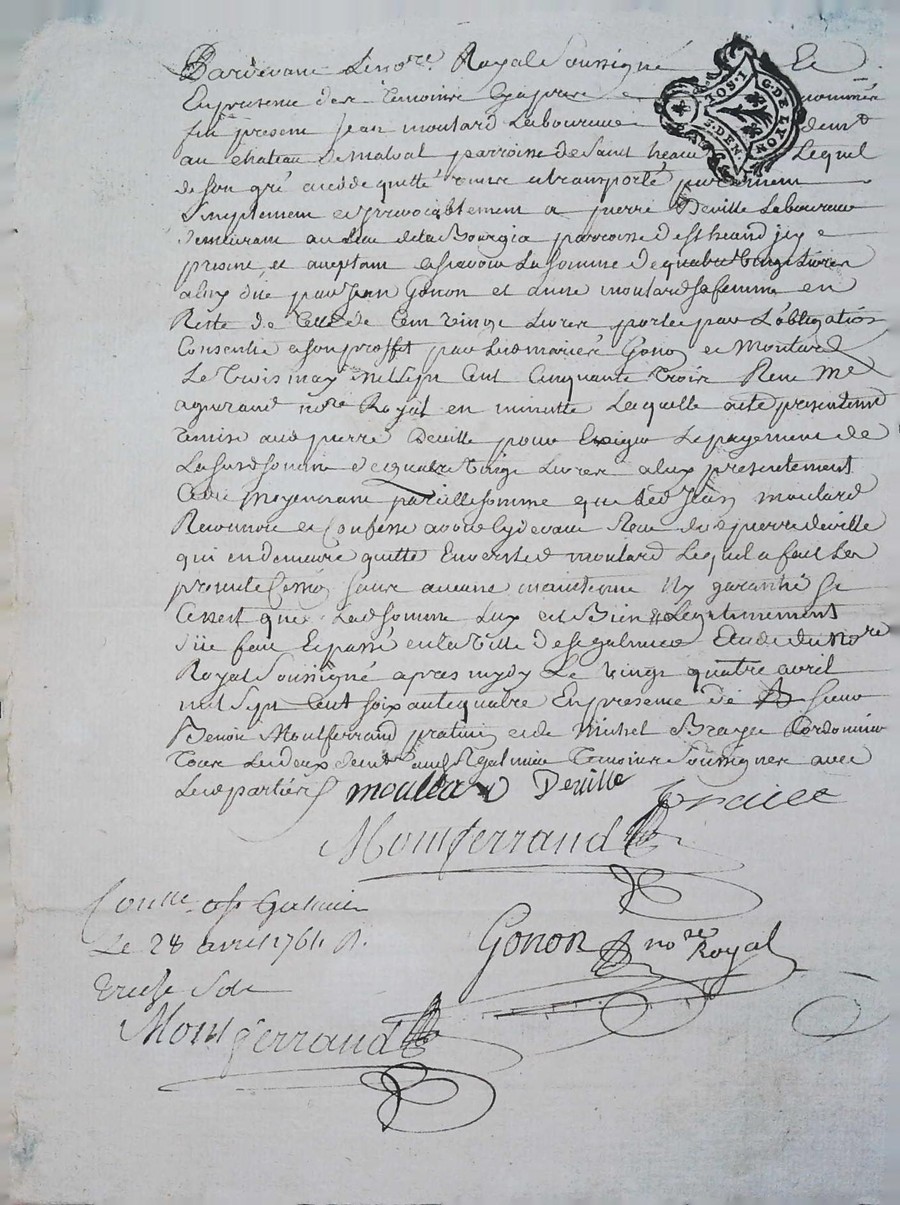 Pardevant Le no.re Royal Soussigné Et
En presence des temoins Cy apres nommés
fut present Jean moutard Laboureur dem.t
au chateau de malval parroisse de Saint heand Lequel
de son gré a cedé quitté remis et transporté purement
Simplement et irrevocablement a pierre Deville Laboureur
demeurant au Lieu de La Bourgia parroisse de st heand icy
present et aceptant a scavoir La somme de quatre vingt Livres
a luy düe par Jean Gonon et anne moutard sa femme en
Reste de celle de Cent vingt Livres portée par L'obligation
Consentie a son proffit par Lesd mariés Gonon et Moutard
Le trois may mil sept Cent Cinquante trois Reçue M.e
no.re Royal en minutte Laquelle acte presentement
remise aud pierre Deville pour Exiger Le payement de
La susd somme de quatre vingt Livres a luy presentement
Cedée moyenant pareille somme que Led Jean moutard
Reconnoit et Confesse avoir cy devant Reçue dud pierre deville
qui en demeure quitte Envers Led moutard Lequel a fait Les
presente Cession sans aucune maintenue Ny garantie Si
Cenest que Lad somme Luy est Bien & Legitimement
düe fait Et passé en La ville de st galmier Etude du No.re
Royal Soussigné apres mydy Le vingt quatre avril
mil Sept Cent soixante quatre En presence de sieur
Benoit Montferrand praticien et de Michel Braye Cordonnier
tous Les deux dem.t aud st galmier temoins Soussignes avec
Lesd parties moutard Deville
Montferrand
Conlle a st Galmier
Le 28 avril 1764 R.
treize Sols
Gonon no.re Royal
Montferrand
10S.1
G. DE LYON
D.DEN.